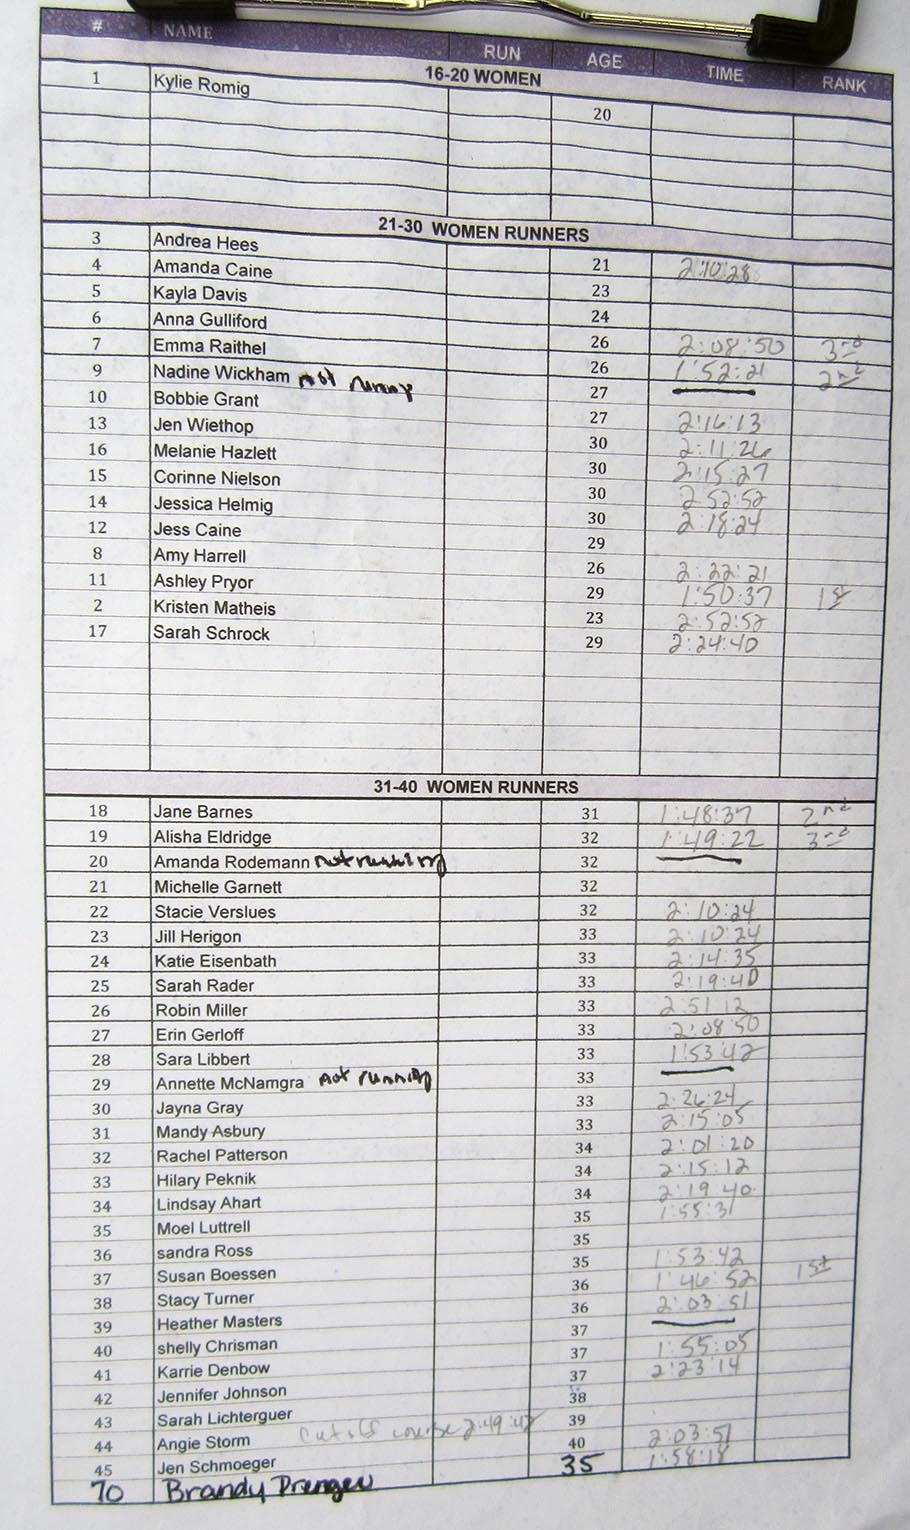 # NAME RUN AGE TIME RANK
16-20 WOMEN
1 Kylie Romig 20
21-30 WOMEN RUNNERS
3 Andrea Hees 21 2:10:28
4 Amanda Caine 23
5 Kayla Davis 24
6 Anna Gulliford 26 2:08:50 3rd
7 Emma Raithel 26 1:52:21 2nd
9 Nadine Wickham not running 27
10 Bobbie Grant 27 2:16:13
13 Jen Wiethop 30 2:11:26
16 Melanie Hazlett 30 2:15:27
15 Corinne Nielson 30 2:52:52
14 Jessica Helmig 30 2:18:24
12 Jess Caine 29
8 Amy Harrell 26 2:22:21
11 Ashley Pryor 29 1:50:37 1st
2 Kristen Matheis 23 2:52:52
17 Sarah Schrock 29 2:24:40
31-40 WOMEN RUNNERS
18 Jane Barnes 31 1:48:37 2nd
19 Alisha Eldridge 32 1:49:22 3rd
20 Amanda Rodemann not running 32
21 Michelle Garnett 32
22 Stacie Verslues 32 2:10:24
23 Jill Herigon 33 2:10:24
24 Katie Eisenbath 33 2:14:35
25 Sarah Rader 33 2:19:40
26 Robin Miller 33 2:51:12
27 Erin Gerloff 33 2:08:50
28 Sara Libbert 33 1:53:42
29 Annette McNamgra not running 33
30 Jayna Gray 33 2:26:24
31 Mandy Asbury 33 2:15:05
32 Rachel Patterson 34 2:01:20
33 Hilary Peknik 34 2:15:12
34 Lindsay Ahart 34 2:19:40
35 Moel Luttrell 35 1:55:31
36 sandra Ross 35
37 Susan Boessen 35 1:53:42
38 Stacy Turner 36 1:46:52 1st
39 Heather Masters 36 2:03:51
40 shelly Chrisman 37
41 Karrie Denbow 37 1:55:05
42 Jennifer Johnson 37 2:23:14
43 Sarah Lichterguer 38
44 Angie Storm cut off course 2:49:42 39
45 Jen Schmoeger 40 2:03:51
70 Brandy Prenger 35 1:58:18